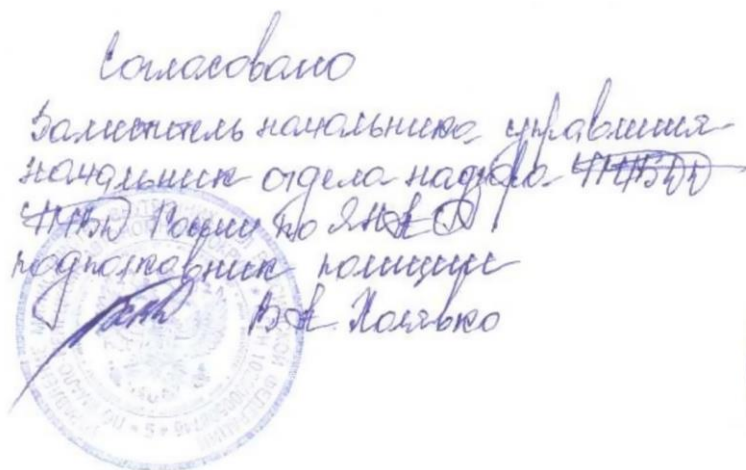 Согласовано
Заместитель начальника управления-
начальник отдела надзора
России по ЯНАО
подполковник полиции
В.А. Холявко